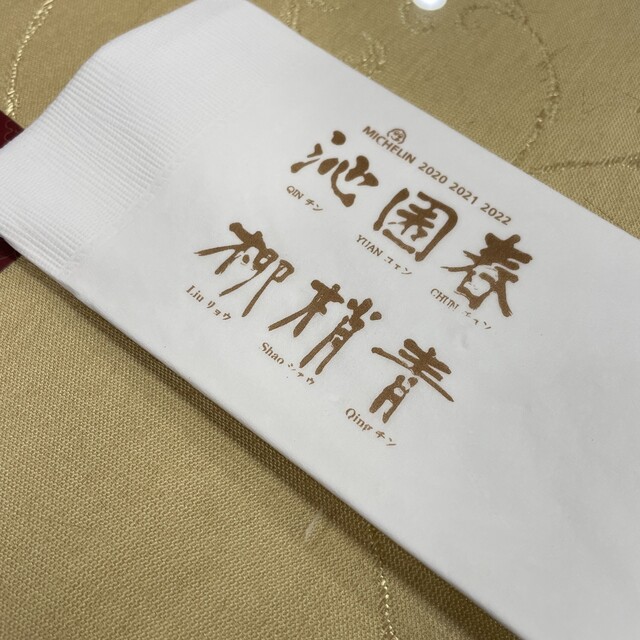 MICHELIN 2020 2021 2022
沁园春
QIN チン YUAN ユェン CHUN チュン
柳梢青
Liu リュウ Shao シァウ Qing チン